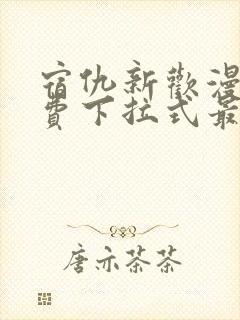 宿仇新歡漫
費下拉式最
唐亦茶茶